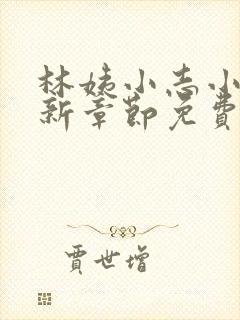 林姨小志小
新章節免費
賈世增